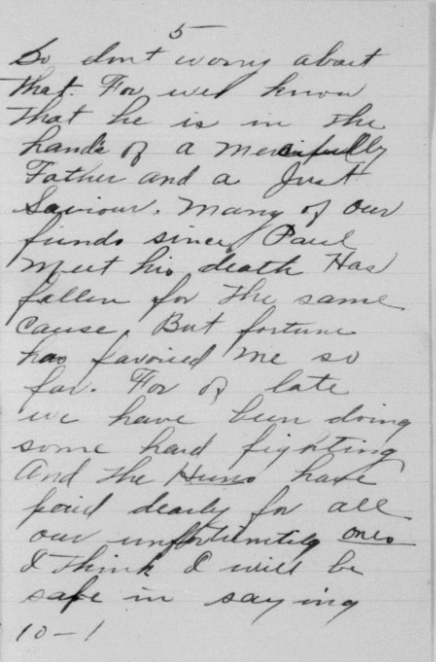 5
So dont worry about
that. For will know
that he is in the
hands of a mercifully
Father and a Just
Saviour. Many of our
friends since Paul
meet his death Has
fallen for the same
cause. But fortune
has favoired me so
far. For of late
we have been doing
some hard fighting
And the Huns have
paid dearly for all
our unfortinitely ones
I think I will be
safe in saying
10-1